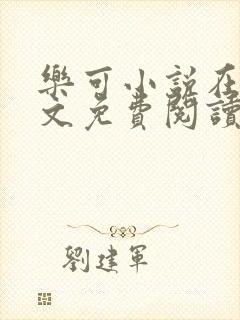 樂可小説在
文免費閱讀
劉建軍